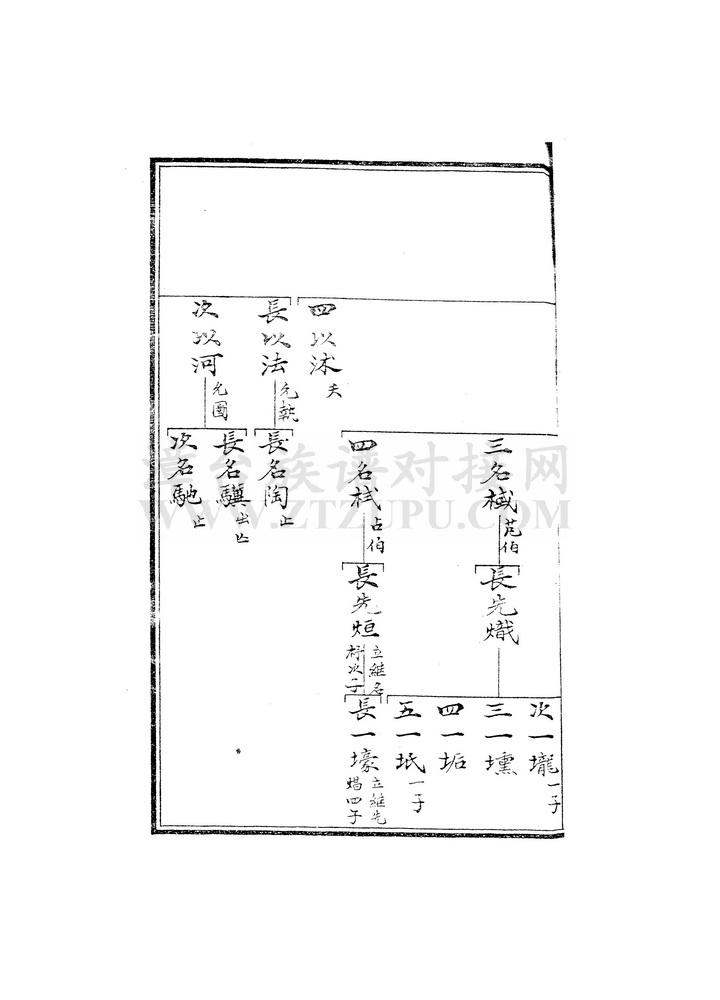 四以沭
夭
長以法
允執
次以河
允圖
三名棫
芃伯
四名栻
占伯
長名陶
止
長名驥
出亡
次名馳
止
長先熾
長先烜
立繼名
杍次子
次一壠
一子
三一壎
四一垢
五一坻
一子
長一壕
立繼先
焻四子
章台族谱对接网
WWW.ZTZUPU.COM